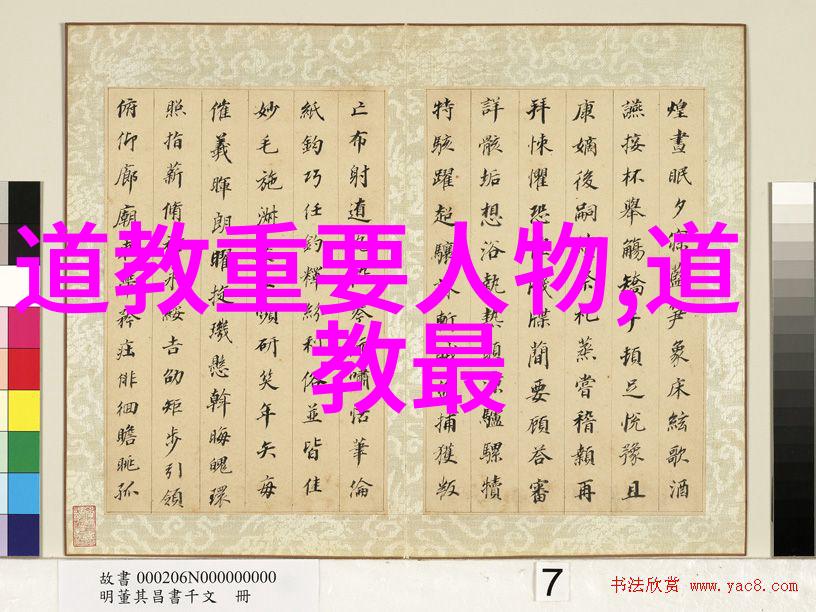 煌晝眠夕寐藍笋象床絃歌酒
讌接杯舉觴矯手頓足悅豫且
康嫡後嗣續祭祀蒸嘗稽顙再
拜悚懼恐牋牒蕳要顧答審
詳骸垢想浴執熱願涼驢騾犢
特駭躍超驤誅斬捕獲叛
亡布射遼嘯恬筆倫
紙鈞巧任釣釋紛利俗並皆佳
妙毛施淑妍笑年矢每
催羲暉朗曜旋璣懸斡晦魄環
照指薪脩永綏吉劭矩步引領
俯仰廊廟矜莊徘徊瞻眺孤
道教重要人物,道
教最
故書 000206N000000000
明董其昌書千文 冊
7
书法欣赏 www.yac8.com